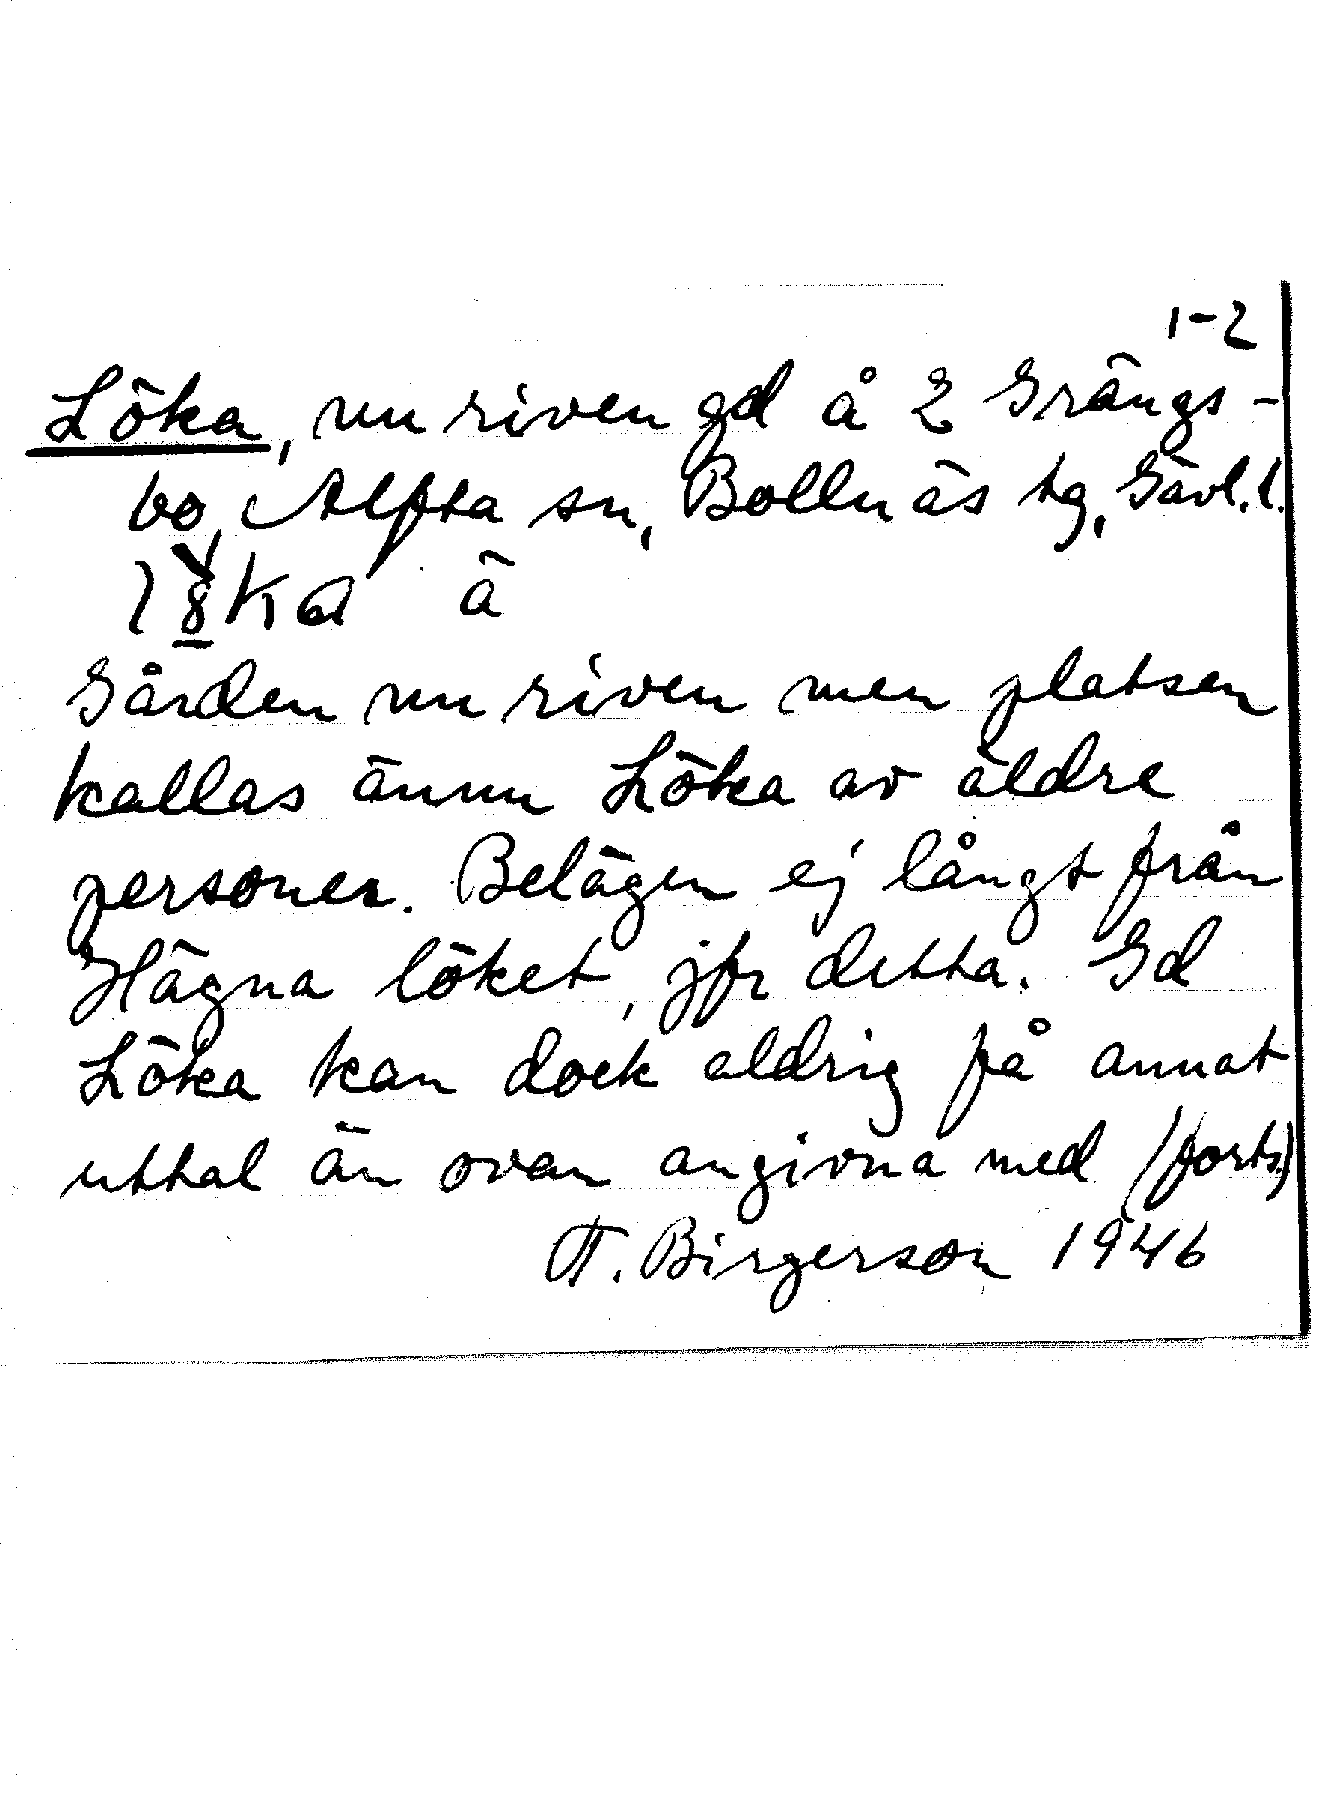 1-2
Löka, nu riven gd å 2 Grängs-
bo, Alfta sn, Bollnäs tg, Gävl. l.
Gården nu riven men platsen
kallas ännu Löka av äldre
personer. Belägen ej långt från
Hägna löket, jfr detta. Gd
Löka kan dock aldrig få annat
uttal än ovan angivna med (forts.)
Birgerson 1946